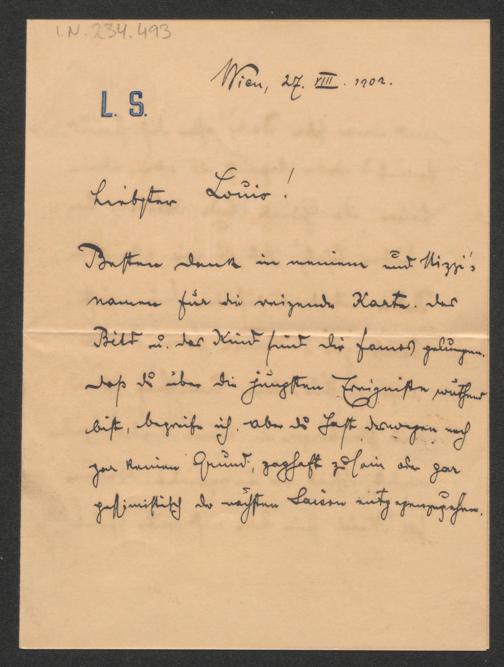 I.N. 234.493
Wien, 27. VIII. 1902.
L. S.
Liebster Louis!
Besten Dank in meinem und Mizzi's
Namen für die reizende Karte. Das
Bild u. das Kind sind dir famos gelungen.
Daß du über die jüngsten Ereigniße wüthend
bist, begreife ich, aber du hast deswegen noch
gar keinen Grund, zaghaft zu sein oder gar
pessimistisch der nächsten Saison entgegenzugehen.